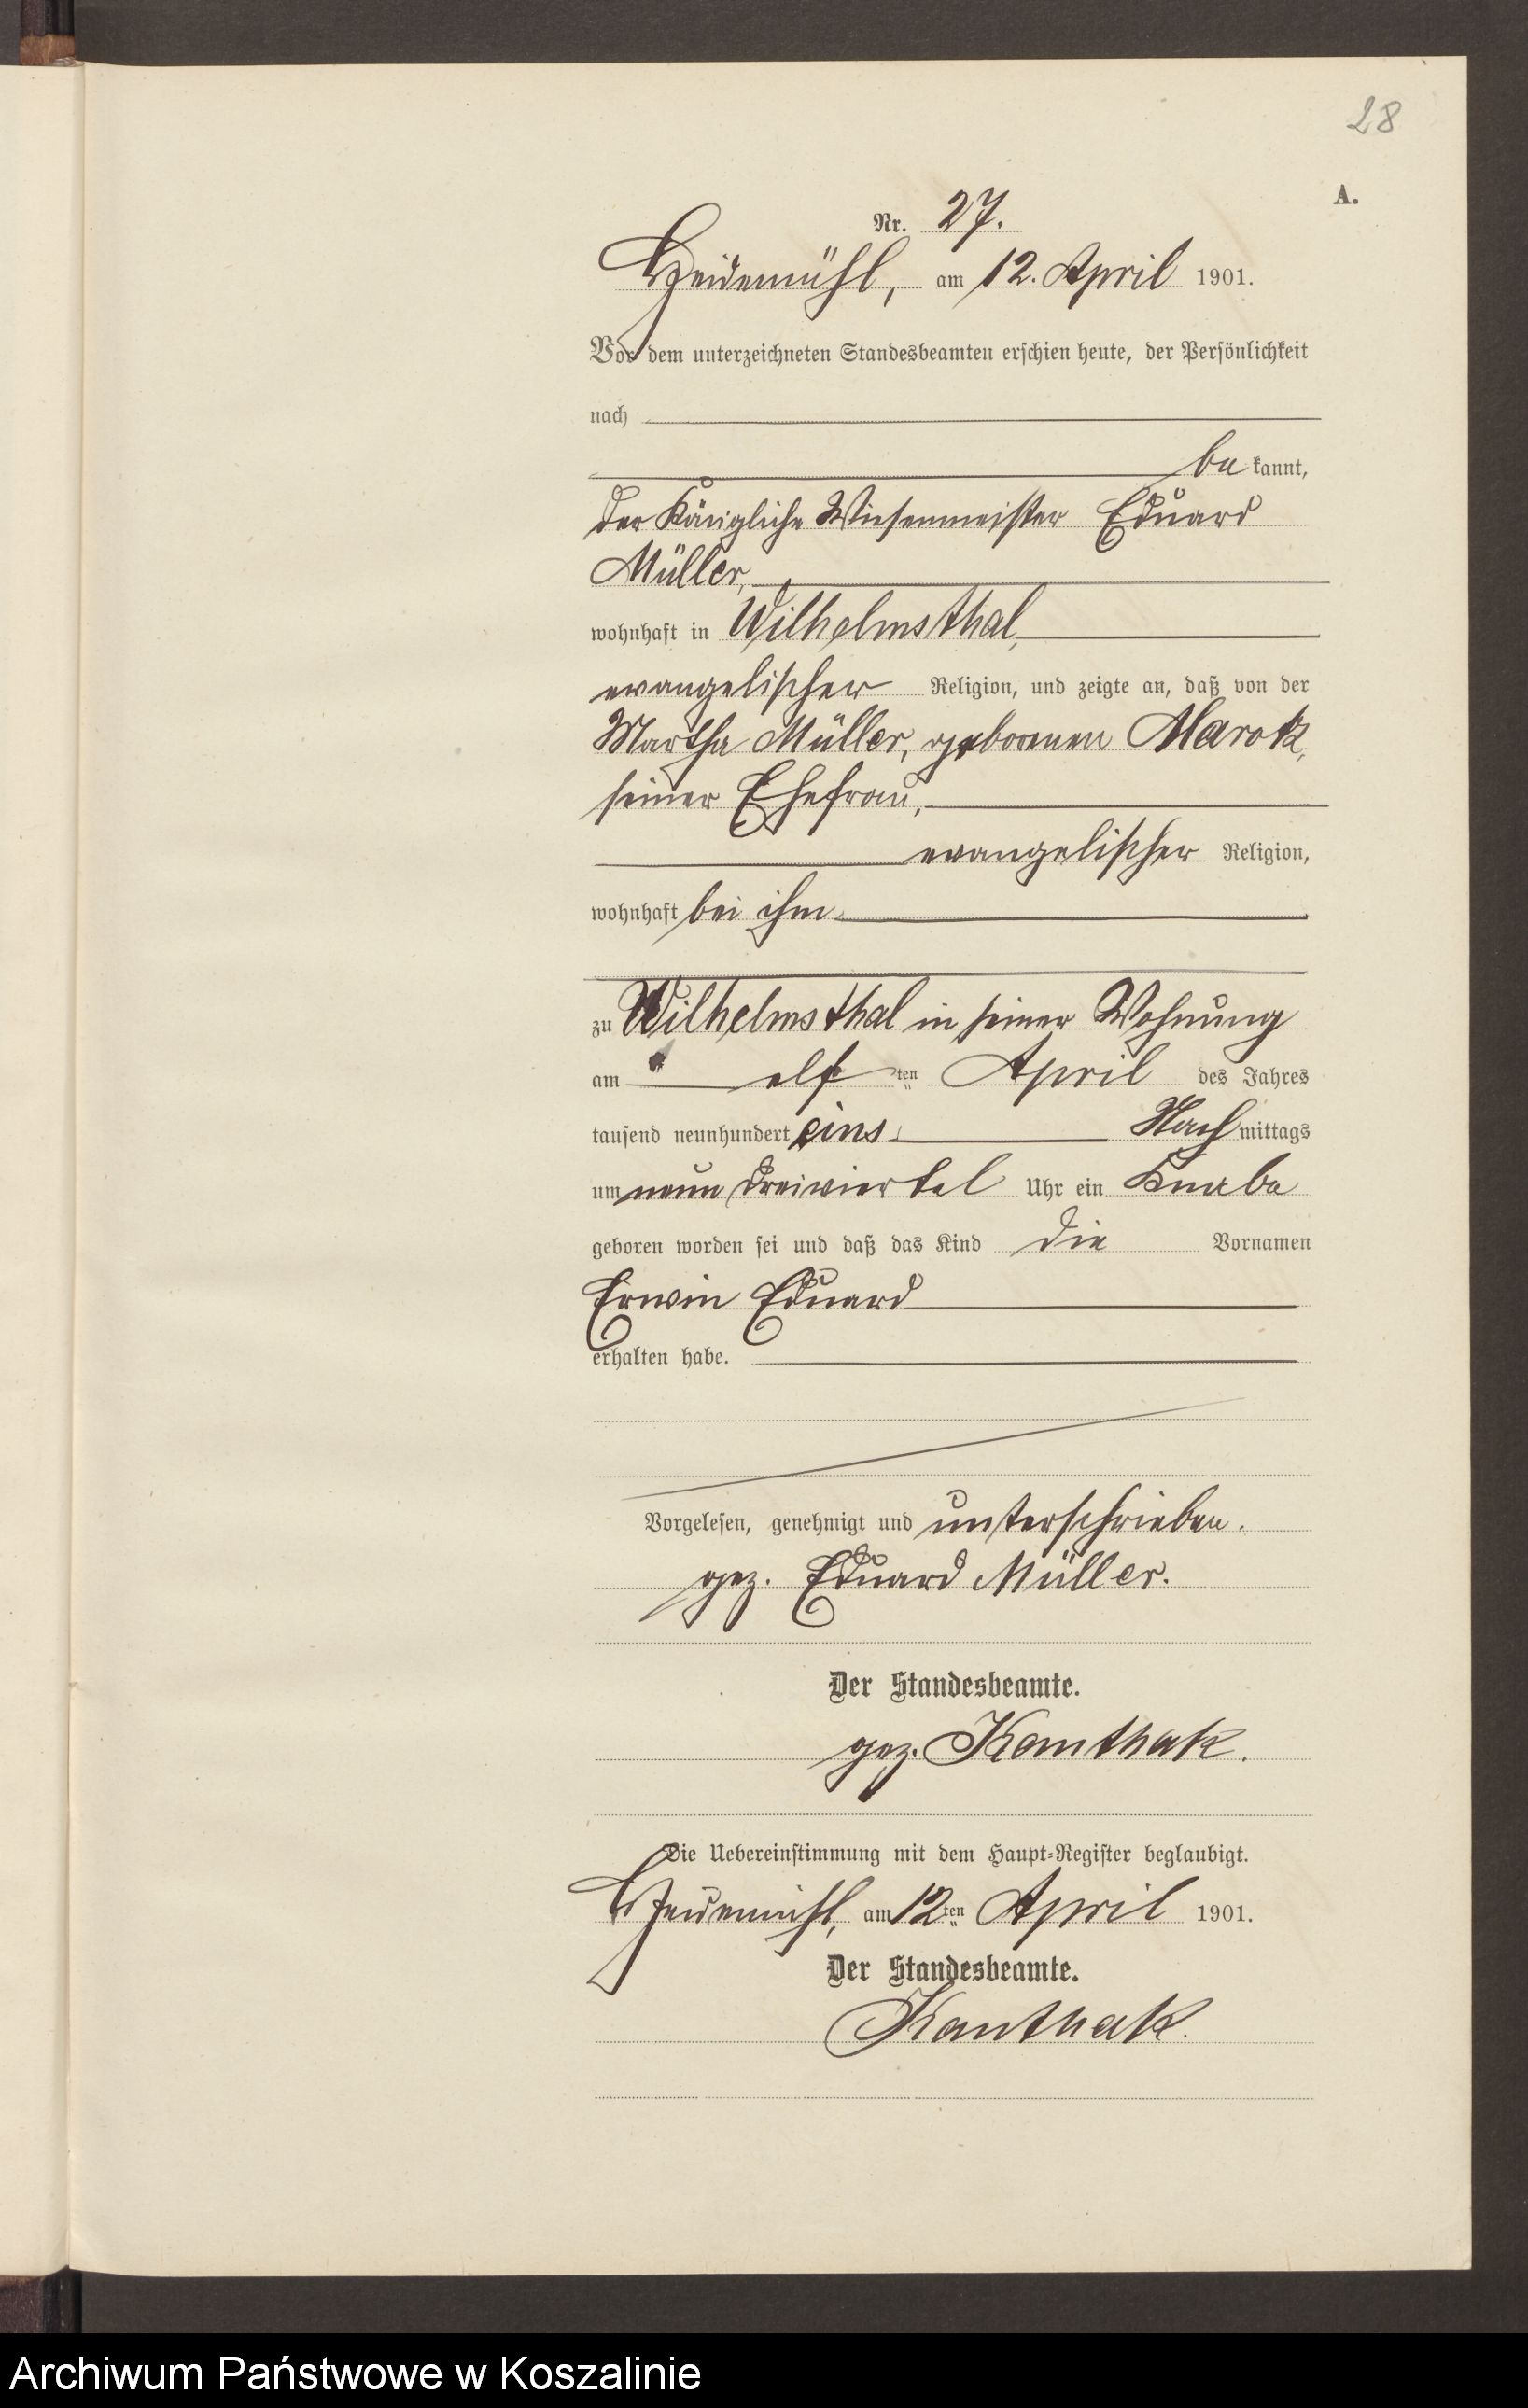 28
A.
Nr. 27.
Heidemühl, am 12. April 1901.
Vor dem unterzeichneten Standesbeamten erschien heute, der Persönlichkeit
nach
be kannt,
der Königliche Wiesenmeister Eduard
Müller,
wohnhaft in Wilhelmsthal,
evangelischer Religion, und zeigte an, daß von der
Martha Müller, geborenen Marok,
seiner Ehefrau,
evangelischer Religion,
wohnhaft bei ihm
zu Wilhelmsthal in seiner Wohnung
am elf ten April des Jahres
tausend neunhundert eins Nach mittags
um neun dreiviertel Uhr ein Knabe
geboren worden sei und daß das Kind die Vornamen
Erwin Eduard
erhalten habe.
Vorgelesen, genehmigt und unterschrieben.
gez. Eduard Müller.
Der Standesbeamte.
gez. Kanthak.
Die Uebereinstimmung mit dem Haupt-Register beglaubigt.
Heidemühl, am 12ten April 1901.
Der Standesbeamte.
Kanthak.
Archiwum Państwowe w Koszalinie